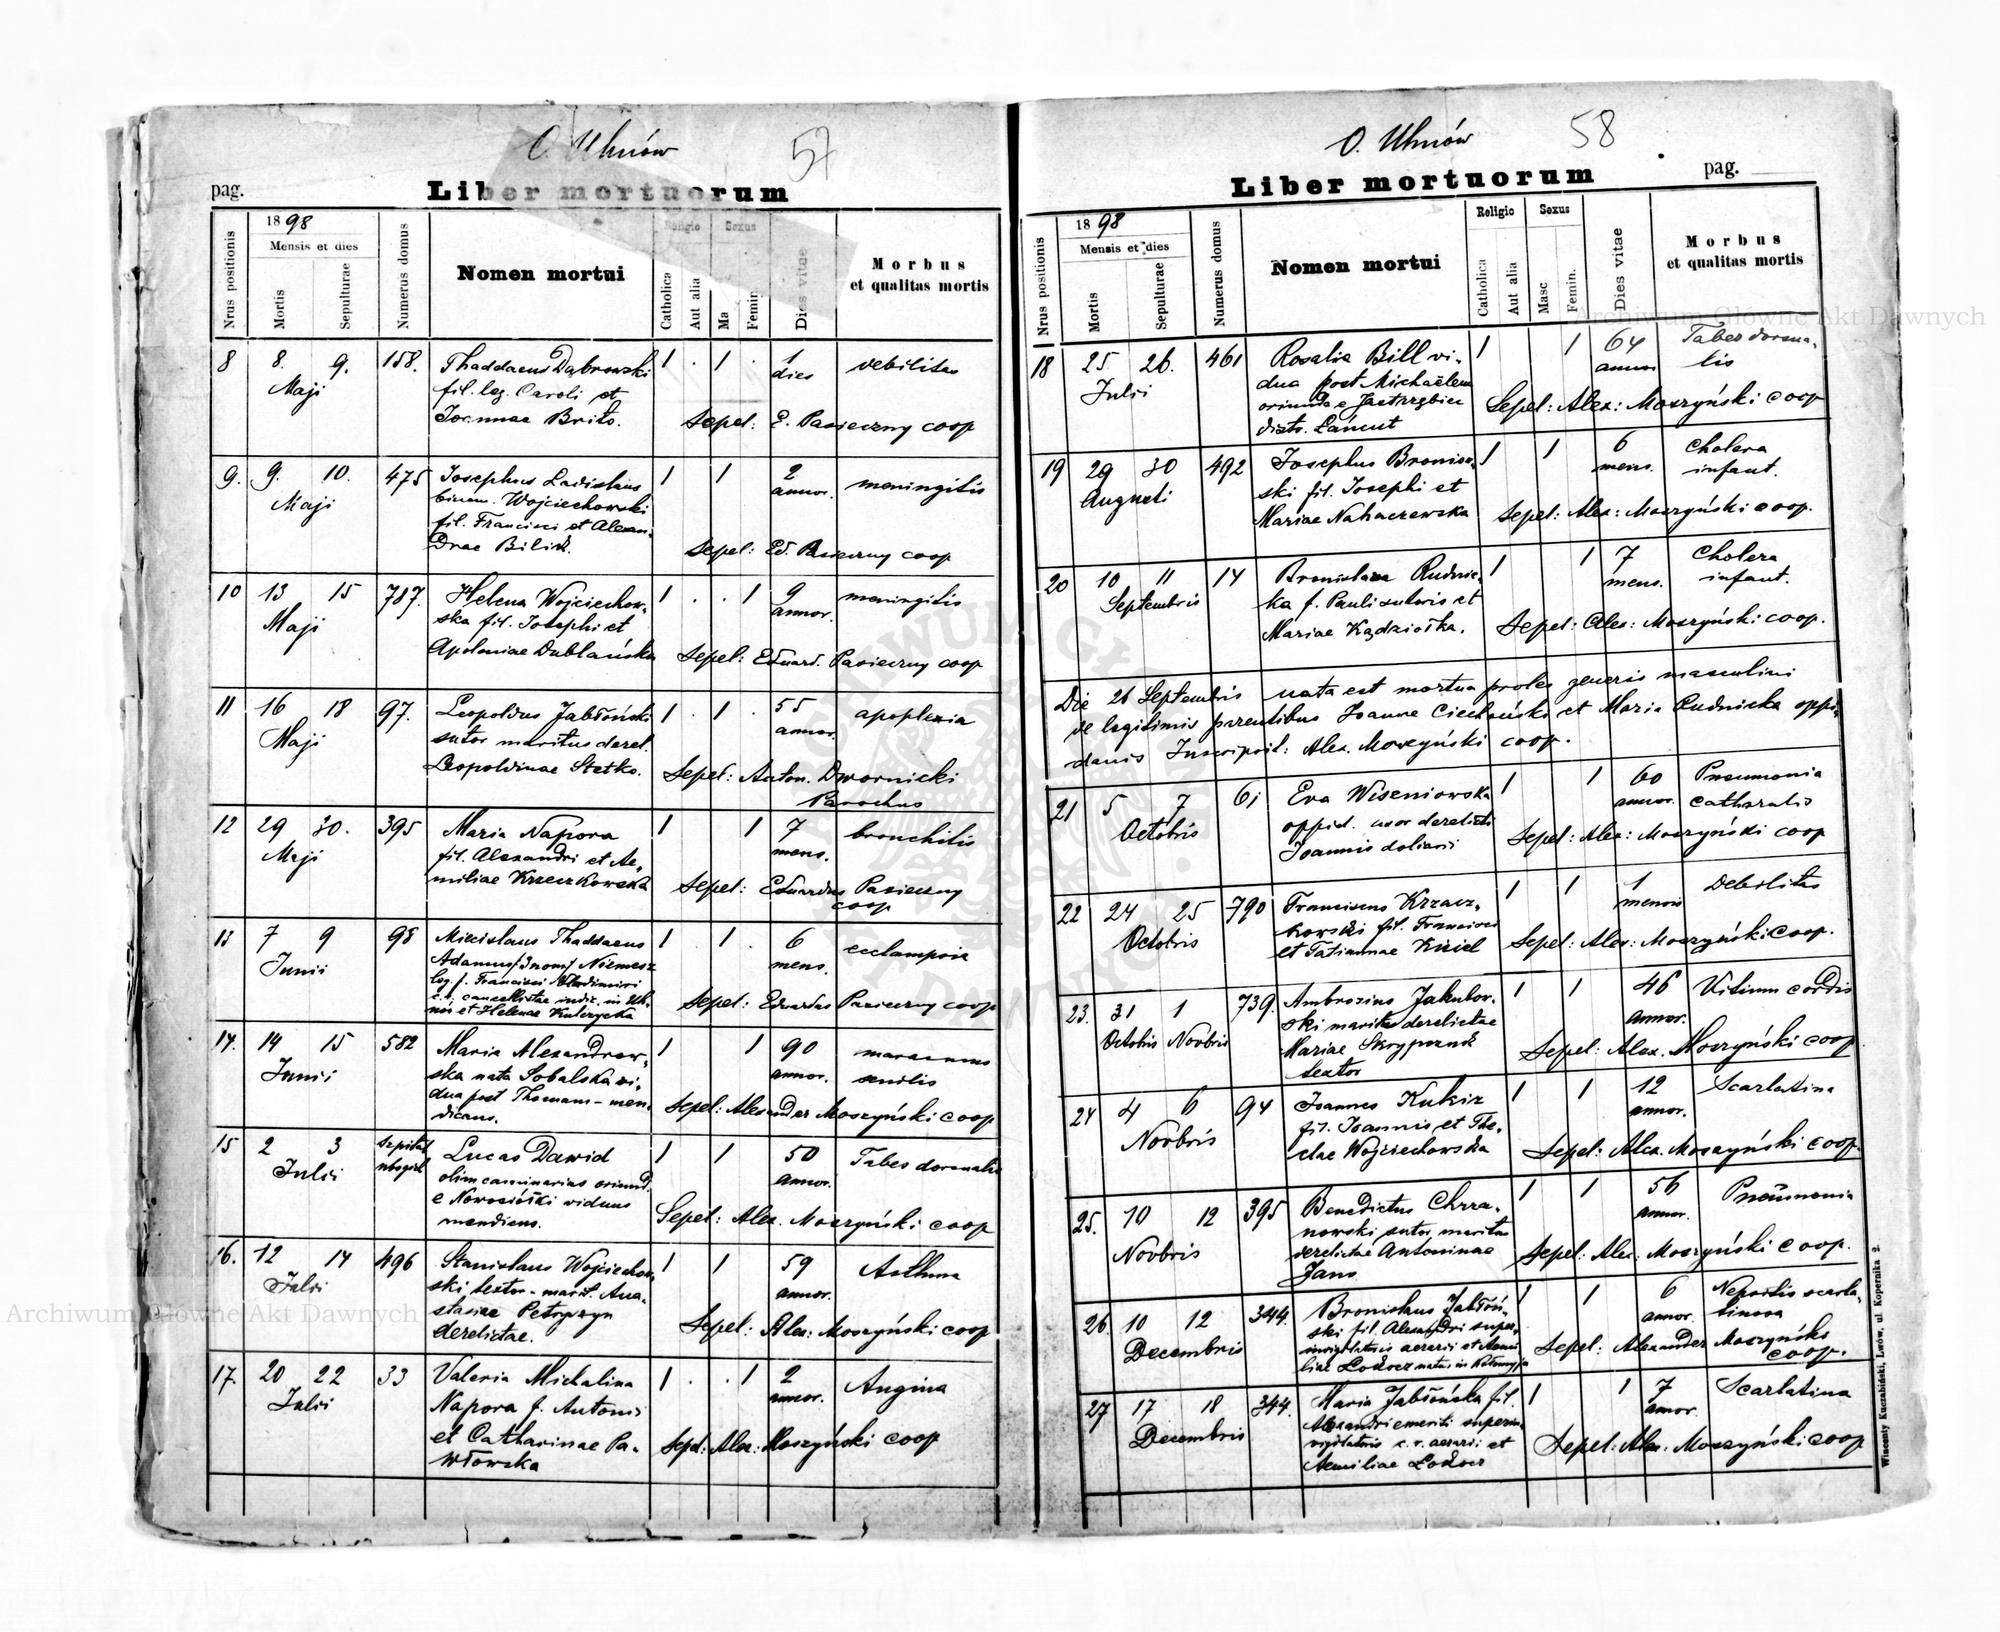 O. Uhnów
57
pag.
Liber mortuorum
Nrus positionis
1898
Mensis et dies
Mortis
Sepulturae
Numerus domus
Nomen mortui
Religio
Catholica
Aut alia
Sexus
Ma
Femin
Dies vitae
Morbus
et qualitas mortis
8 8. 9. 158. Thaddaeus Dąbrowski 1 . 1 . 1 debilitas
Maji fil. leg. Caroli et dies
Joannae Brito. Sepel: E. Pasieczny coop
9. 9. 10. 475 Josephus Ladislaus 1 1 2 meningitis
Maji binom. Wojciechowski annor.
fil. Francisci et Alexan-
drae Bilik. Sepel: Ed. Pasieczny coop
10 13 15 787. Helena Wojciechow- 1 . . 1 9 meningitis
Maji ska fil. Josephi et annor.
Apoloniae Dublańska Sepel: Eduard. Pasieczny coop
11 16 18 97. Leopoldus Jabłoński 1 . 1 . 55 apoplexia
Maji sutor maritus derel. annor.
Leopoldinae Stetko. Sepel: Anton. Dwornicki
Parochus
12 29 30. 395 Maria Napora 1 1 7 bronchitis
Maji fil. Alexandri et Ae- mens.
miliae Krzeczkowska Sepel: Eduardus Pasieczny
coop
13 7 9 98 Miecislaus Thaddaeus 1 . 1 . 6 ecclampsia
Junii Adamus /3nom/ Niemesz mens.
leg. f. Francisci Vladimiri
c. r. cancellistae iudic. in Uh- Sepel: Eduardus Pasieczny coop
nów et Helenae Kulczycka
14. 14 15 582 Maria Alexandrow- 1 1 90 marasmus
Junii ska nata Sobalska vi- annor. senilis
dua post Thomam - men-
dicans. Sepel: Alexander Moszyński coop
15 2 3 szpital Lucas Dawid 1 1 50 Tabes dorsualis
Julii ubogich olim caminarius oriund. annor.
e Nowosiółki viduus
mendicus. Sepel: Alex. Moszyński coop
16. 12 14 496 Stanislaus Wojciechow- 1 1 59 Asthma
Julii ski textor - marit. Ana- annor.
stasiae Petryszyn
derelictae. Sepel: Alex: Moszyński coop
17. 20 22 33 Valeria Michalina 1 . . 1 2 Angina
Julii Napora f. Antonii annor.
et Catharinae Pa- Sepel: Alex: Moszyński coop
włowska
O. Uhnów
58
Liber mortuorum
pag.
Nrus positionis
1898
Mensis et dies
Mortis
Sepulturae
Numerus domus
Nomen mortui
Religio
Catholica
Aut alia
Sexus
Masc
Femin.
Dies vitae
Morbus
et qualitas mortis
18 25. 26. 461 Rosalia Bill vi- 1 1 64 Tabes dorsua-
Julii dua post Michaëlem annor lis
oriunda e Jastrzębiec Sepel: Alex: Moszyński coop
distr. Łańcut
19 29 30 492 Josephus Bronisz- 1 1 6 Cholera
Augusti ski fil. Josephi et mens. infant.
Mariae Nahaczewska Sepel: Alex: Moszyński coop.
20 10 11 14 Bronislava Rudnic- 1 1 7 Cholera
Septembris ka f. Pauli sutoris et mens. infant.
Mariae Kądziołka. Sepel: Alex: Moszyński coop.
Die 26 Septembris nata est mortua proles generis masculini
de legitimis parentibus Joanne Ciechoński et Maria Rudnicka oppi-
danis Inscripsit: Alex. Moszyński coop.
21 5 7 61 Eva Wiseniowska 1 1 60 Pneumonia
Octobris oppid. uxor derelicti annor. catharalis
Joannis doliarii Sepel: Alex: Moszyński coop
22 24 25 790 Franciscus Krzacz- 1 1 1 Debilitas
Octobris kowski fil. Francisci mensis
et Tatiannae Kiziel Sepel: Alex: Moszyński coop.
23. 31 1 739. Ambrosius Jakubow- 1 1 46 Vitium cordis
Octobris Novbris ski maritus derelictae annor.
Mariae Skrypczuk Sepel: Alex. Moszyński coop
textor
24 4 6 94 Joannes Kukiz 1 1 12 Scarlatina
Novbris fil. Joannis et The- annor.
clae Wojciechowska Sepel: Alex. Moszyński coop.
25. 10 12 395 Benedictus Chrza- 1 1 56 Pneumonia
Novbris nowski sutor, maritus annor.
derelictae Antoninae Sepel: Alex: Moszyński coop.
Jans
26. 10 12 344. Bronislaus Jabłoń- 1 1 6 Nephritis scarla-
Decembris ski fil. Alexandri super- annor. tinosa
invigilatoris aerarii et Aemi- Sepel: Alexander Moszyński
liae natus in Kołomyja coop.
27 17 18 344. Maria Jabłońska fil. 1 1 7 Scarlatina
Decembris Alexandri emeriti superin- annor
vigilatoris c. r. aerarii et Sepel: Alex: Moszyński coop
Aemiliae
Wincenty Kuczabiński, Lwów, ul. Kopernika 2.
Archiwum Główne Akt Dawnych
Archiwum Główne Akt Dawnych